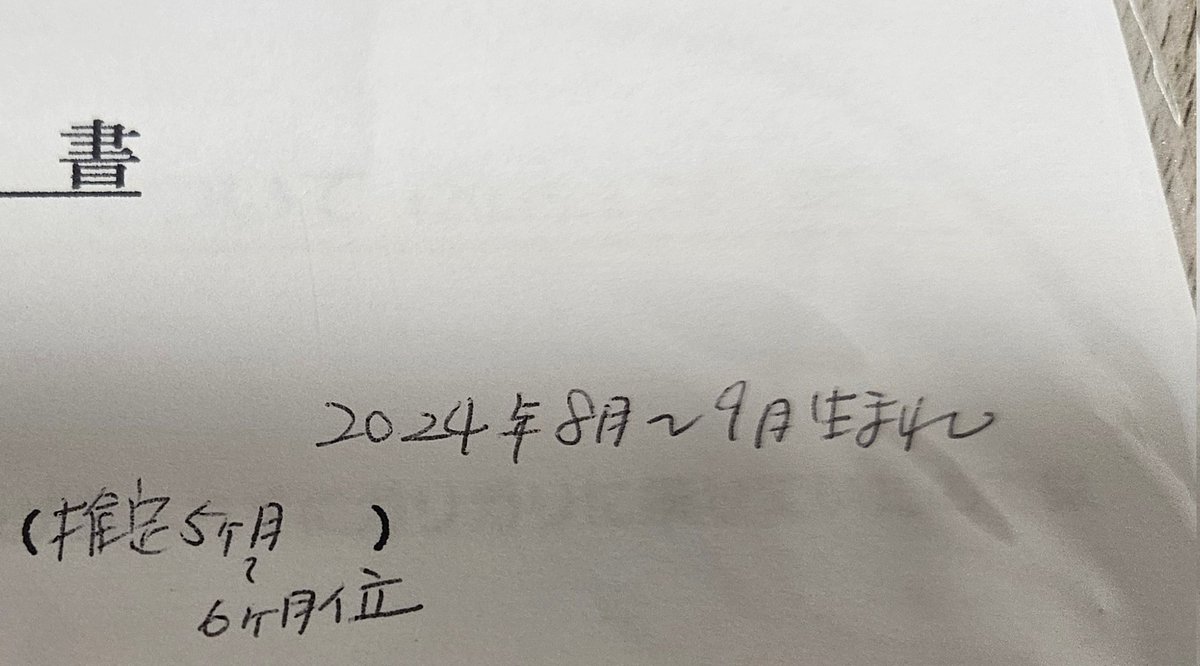 書
2024年8月~9月生まれ
(推定5ヶ月)
~
6ヶ月位